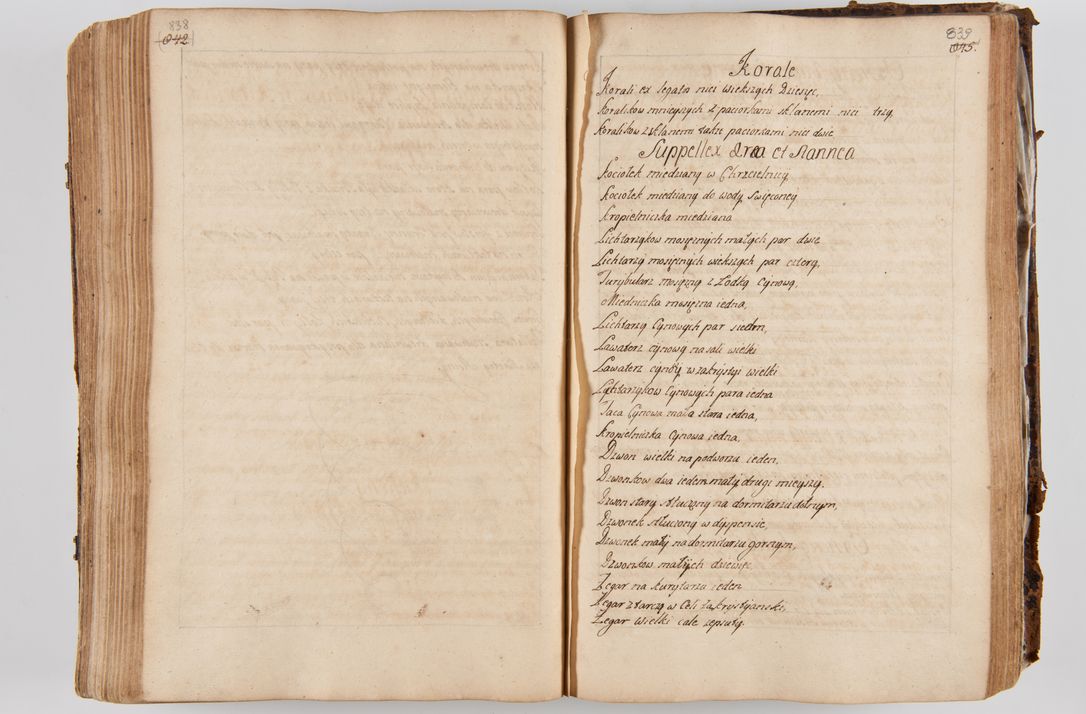 838
842
839
845.
Korale
Korali ex legato nici wiekszych dziesęc,
Koralikow mnieyszych z paciorkami sklanemi nici trzy,
Koralikow z sklanemi także paciorkami nici dwie
Suppellex Ærea et Stannea
Kociołek miedziany w Chrzcielnicy
Kociołek miedziany do wody swięconey
Kropielniczka miedziana
Lichtarzykow mosięznych małych par dwie
Lichtarzy mosięznych wiekszych par cztery,
Turybularz mosięzny z Łodką Cynową,
Miedniczka mosięzna iedna,
Lichtarzy Cynowych par siedm,
Lawaterz cynowy na sali wielki
Lawaterz cynowy w zakrystyi wielki
Lichtarzykow Cynowych para iedna
Taca Cynowa mała stara iedna,
Kropielniczka Cynowa iedna,
Dzwon wielki na podworzu ieden,
Dzwonkow dwa ieden mały drugi mieyszy.
Dzwon stary stłuczony na dormitarzu dolnym,
Dzwonek stłuczony w dyspensie,
Dzwonek mały na dormitarzu gornym,
Dzwonkow małych dziewięc
Zegar na kurytarzu ieden
Zegar z tarczą w Celi zakrystyanski,
Zegar wielki cale zepsuty.